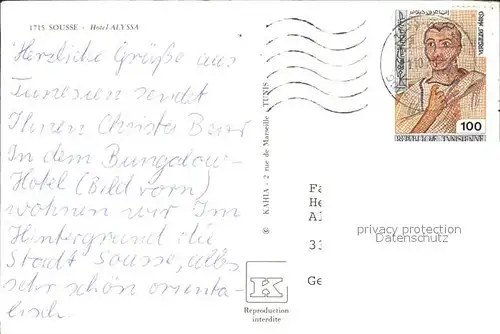 1715 SOUSSE - Hotel ALYSSA
Herzliche Grüße aus
Tunesien sendet
Ihnen Christa
In dem Bungalow-
Hotel (Bild vorn)
wohnen wir Im
Hintergrund die
Stadt Sousse, alles
sehr schön orienta-
lisch
© KAHIA - 2 rue de Marseille - TUNIS
K
Reproduction
interdite
100
REPUBLIQUE TUNISIENNE
Fa
He
Al
31
Ge
privacy protection
Datenschutz